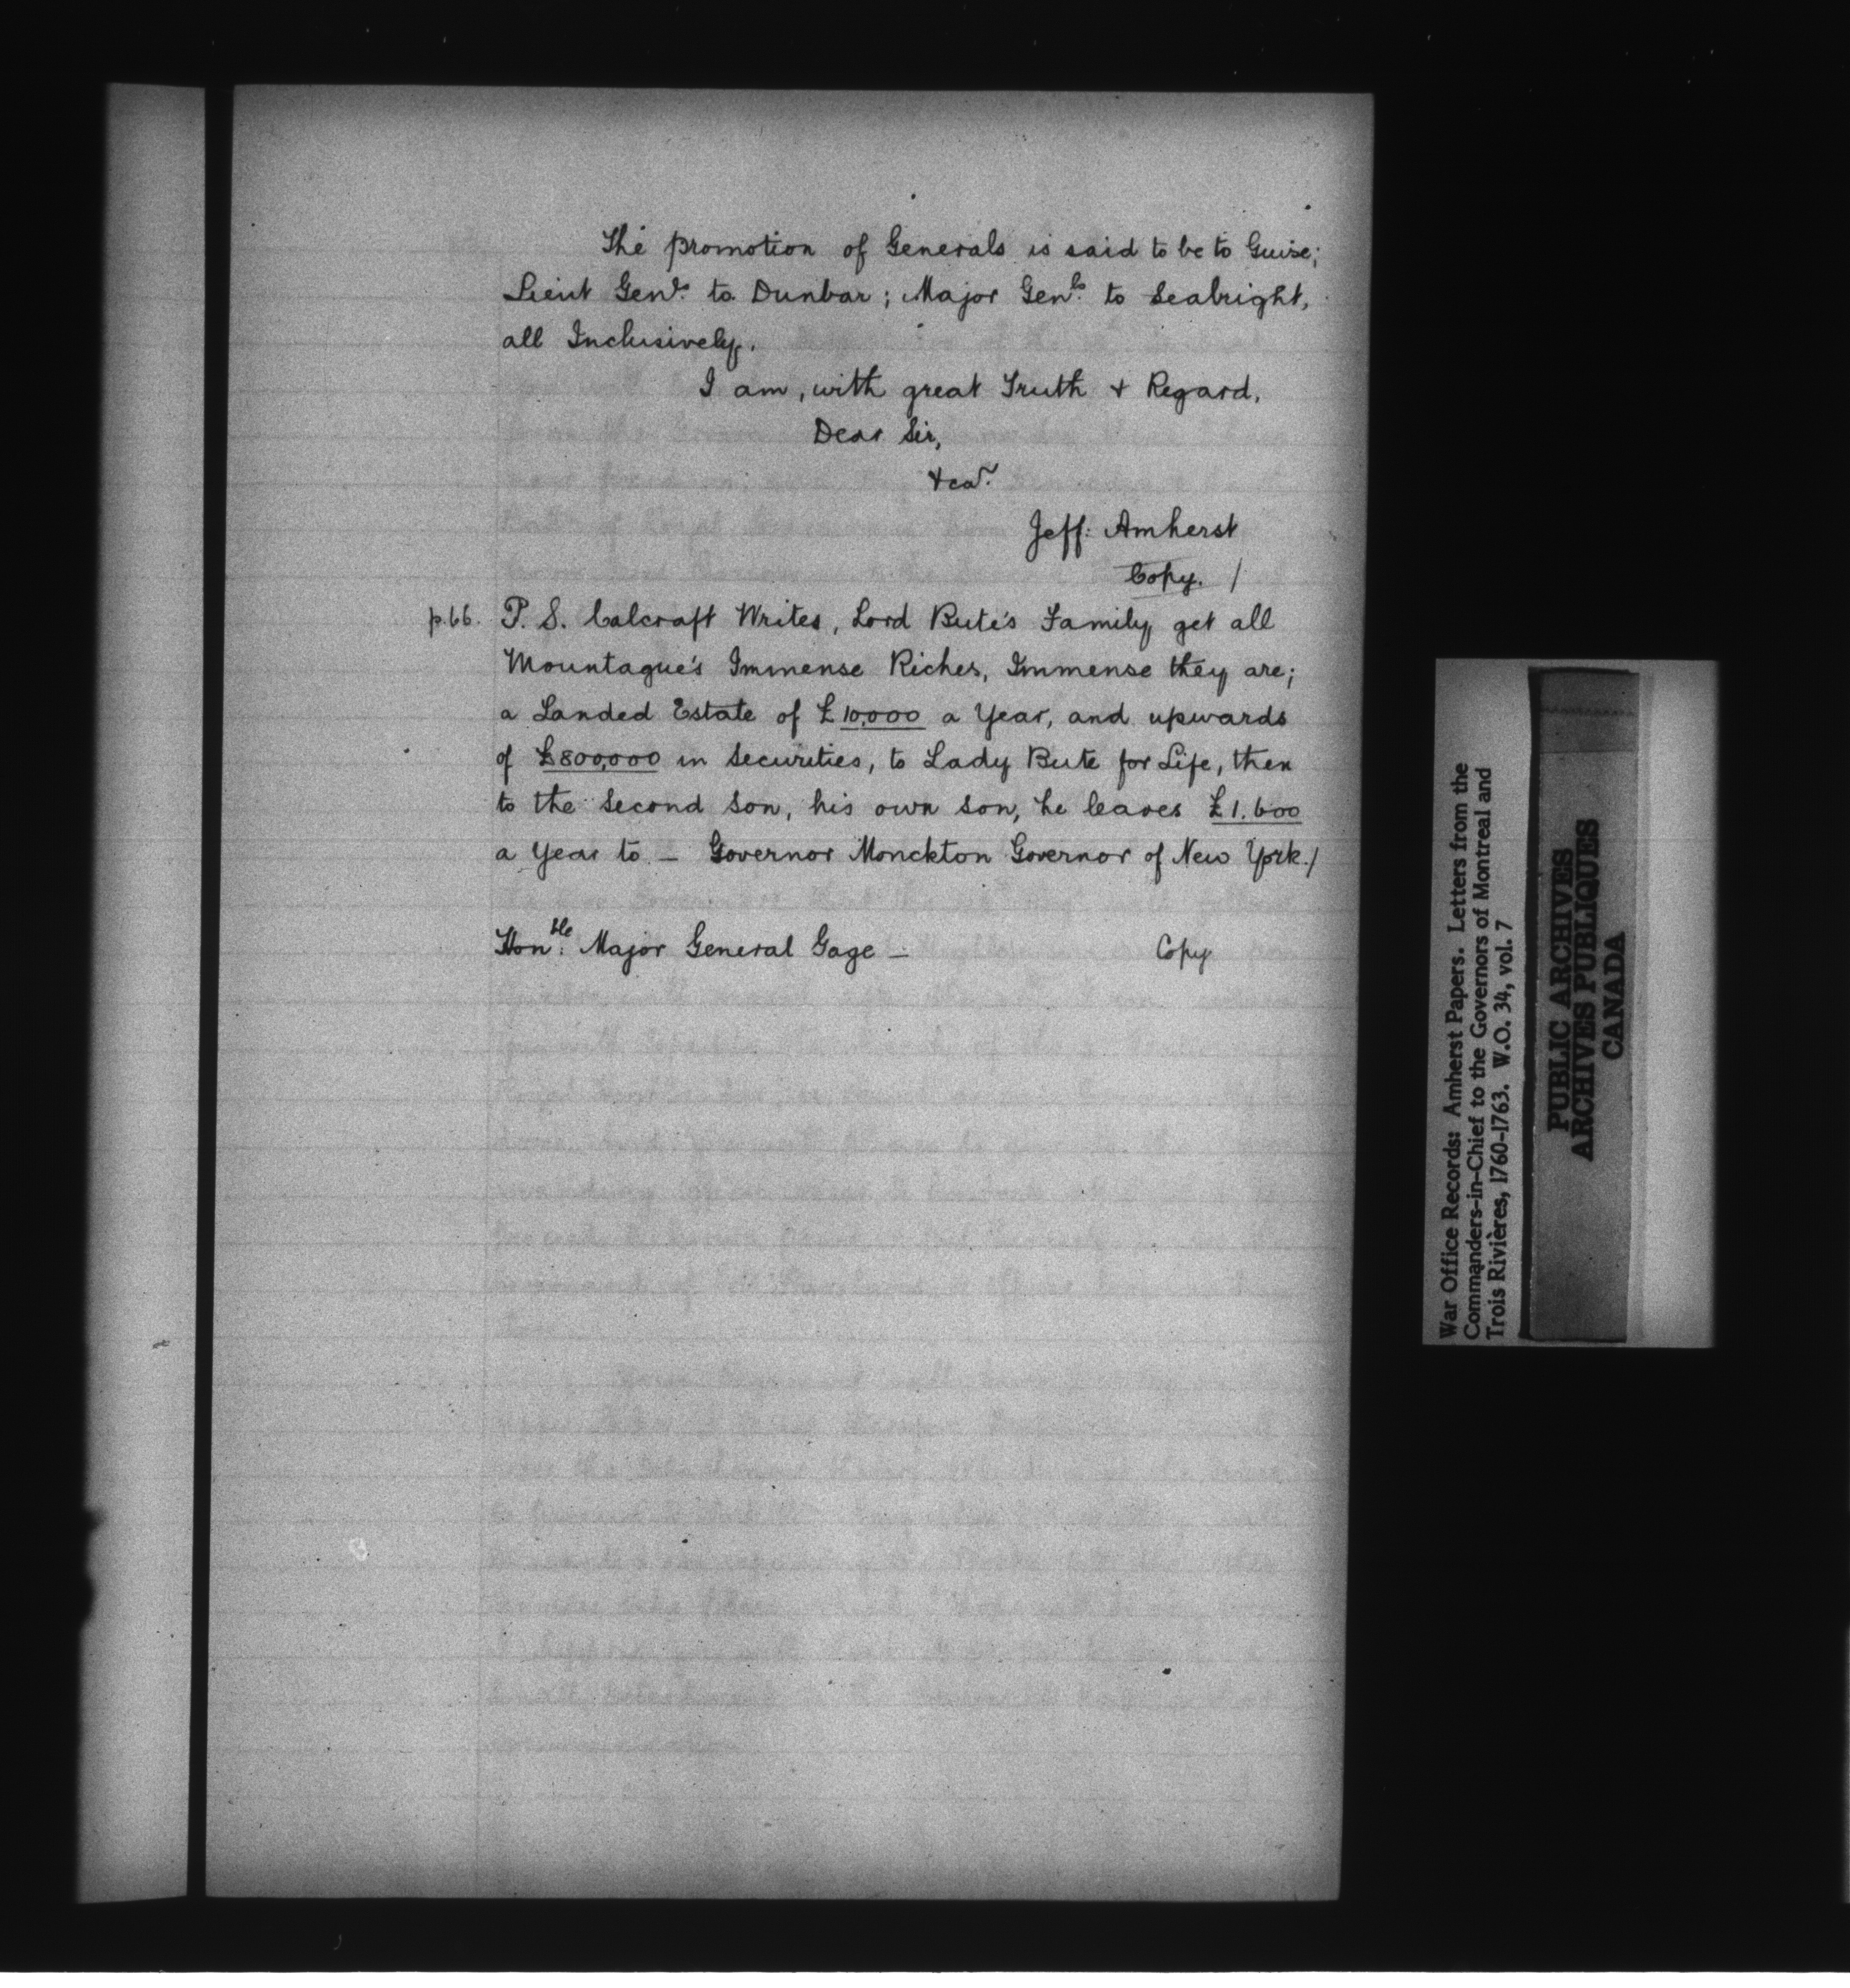 The promotion of Generals is said to be to Guise;
Lieut Genls. to Dunbar; Major Genls. to Seabright,
all Inclusively.
I am, with great Truth & Regard,
Dear Sir,
&ca.
Jeff: Amherst
Copy. /
p.66. P. S. Calcraft Writes, Lord Bute's Family get all
Mountague's Immense Riches, Immense they are;
a Landed Estate of £10,000 a Year, and upwards
of £800,000 in Securities, to Lady Bute for Life, then
to the Second Son, his own Son, he leaves £1.600
a Year to — Governor Monckton Governor of New York./
Honble: Major General Gage — Copy
War Office Records: Amherst Papers. Letters from the
Commanders-in-Chief to the Governors of Montreal and
Trois Rivières, 1760-1763. W.O. 34, vol. 7
PUBLIC ARCHIVES
ARCHIVES PUBLIQUES
CANADA